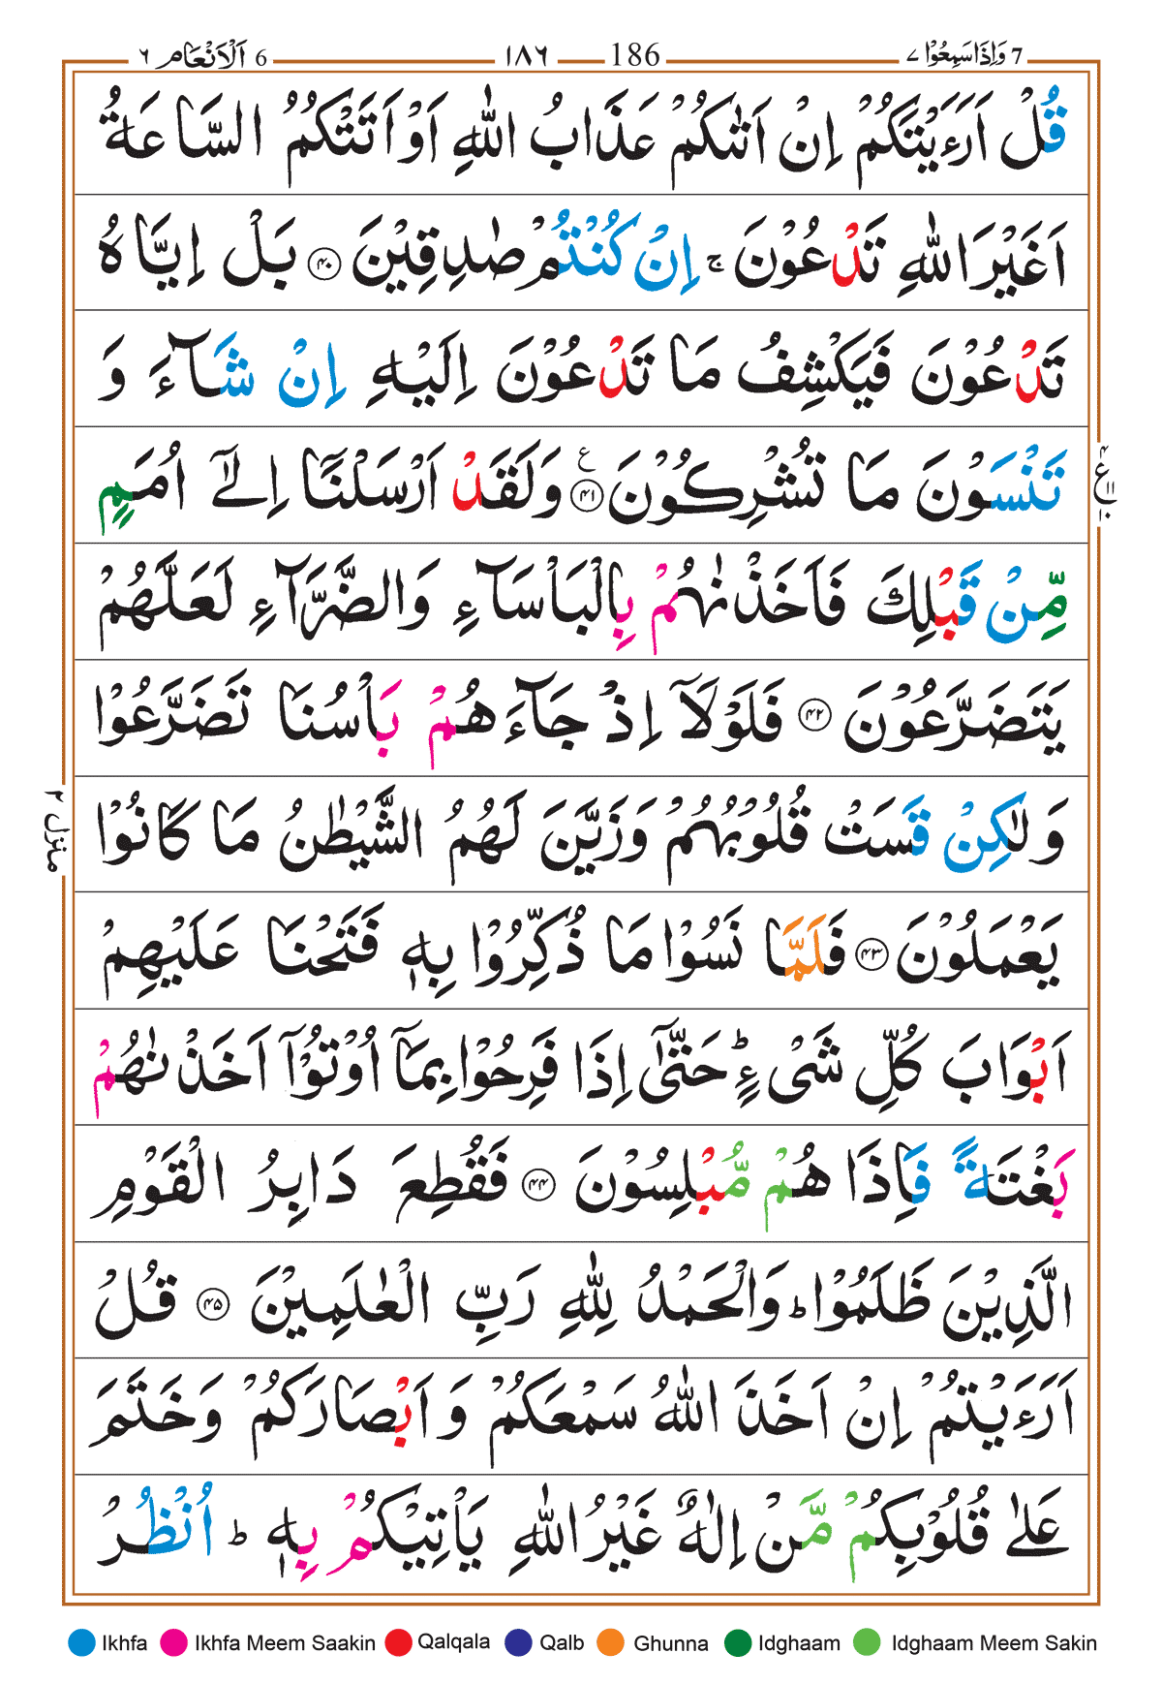 7 وَاِذَاسَمِعُوۡا ٧ 186 ١٨٦ 6 اَلۡاَنۡعَام ٦
قُلۡ اَرَءَيۡتَكُمۡ اِنۡ اَتٰٮكُمۡ عَذَابُ اللّٰهِ اَوۡ اَتَتۡكُمُ السَّاعَةُ
اَغَيۡرَ اللّٰهِ تَدۡعُوۡنَ ۚ اِنۡ كُنۡتُمۡ صٰدِقِيۡنَ ﴿۴۰﴾ بَلۡ اِيَّاهُ
تَدۡعُوۡنَ فَيَكۡشِفُ مَا تَدۡعُوۡنَ اِلَيۡهِ اِنۡ شَآءَ وَ
تَنۡسَوۡنَ مَا تُشۡرِكُوۡنَ ﴿۴۱﴾ ع وَلَقَدۡ اَرۡسَلۡنَاۤ اِلٰٓى اُمَمٍ
مِّنۡ قَبۡلِكَ فَاَخَذۡنٰهُمۡ بِالۡبَاۡسَآءِ وَالضَّرَّآءِ لَعَلَّهُمۡ
يَتَضَرَّعُوۡنَ ﴿۴۲﴾ فَلَوۡلَاۤ اِذۡ جَآءَهُمۡ بَاۡسُنَا تَضَرَّعُوۡا
وَلٰكِنۡ قَسَتۡ قُلُوۡبُهُمۡ وَزَيَّنَ لَهُمُ الشَّيۡطٰنُ مَا كَانُوۡا
منزل ٢
يَعۡمَلُوۡنَ ﴿۴۳﴾ فَلَمَّا نَسُوۡا مَا ذُكِّرُوۡا بِهٖ فَتَحۡنَا عَلَيۡهِمۡ
اَبۡوَابَ كُلِّ شَىۡءٍ ؕ حَتّٰٓى اِذَا فَرِحُوۡا بِمَاۤ اُوۡتُوۡۤا اَخَذۡنٰهُمۡ
بَغۡتَةً فَاِذَا هُمۡ مُّبۡلِسُوۡنَ ﴿۴۴﴾ فَقُطِعَ دَابِرُ الۡقَوۡمِ
الَّذِيۡنَ ظَلَمُوۡا ؕ وَالۡحَمۡدُ لِلّٰهِ رَبِّ الۡعٰلَمِيۡنَ ﴿۴۵﴾ قُلۡ
اَرَءَيۡتُمۡ اِنۡ اَخَذَ اللّٰهُ سَمۡعَكُمۡ وَ اَبۡصَارَكُمۡ وَخَتَمَ
عَلٰى قُلُوۡبِكُمۡ مَّنۡ اِلٰهٌ غَيۡرُ اللّٰهِ يَاۡتِيۡكُمۡ بِهٖ ؕ اُنۡظُرۡ
Ikhfa Ikhfa Meem Saakin Qalqala Qalb Ghunna Idghaam Idghaam Meem Sakin